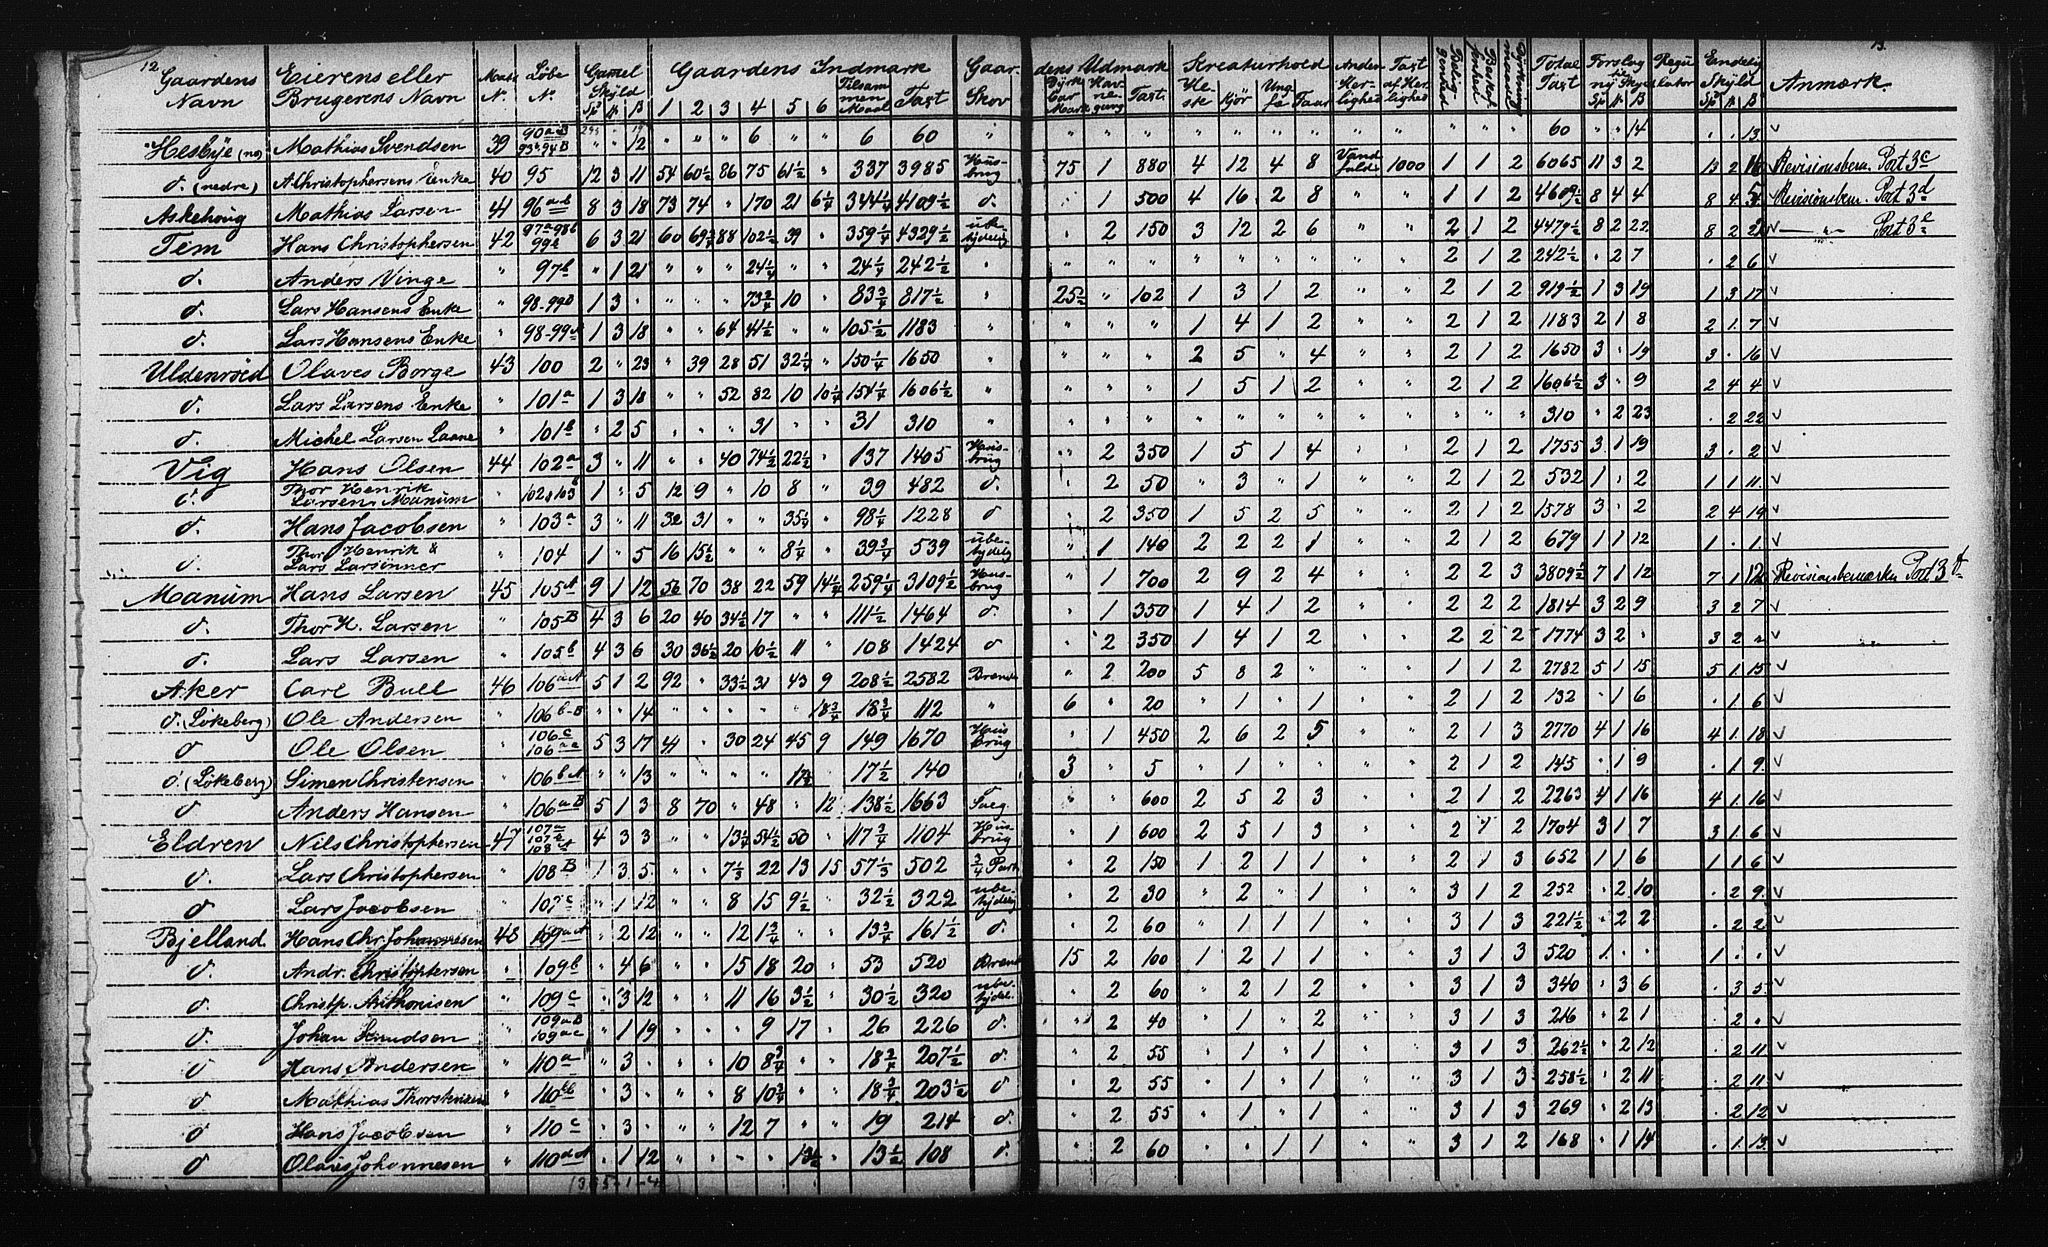 12. 13.
Gaardens Navn | Eierens eller Brugerens Navn | Matr. N. | Løbe N. | Gamel Skyld Sp ß | Gaardens Indmark 1 2 3 4 5 6 Tilsammen Maal Taxt | Gaardens Udmark Skov Dyrkbar Mark Havnegang Taxt | Kreaturhold Heste Kjør Ungfe Faar | Anden Herlighed | Taxt af Herlighed | Total Taxt | Forslag til ny Skyld Sp ß | Regulator | Endelig Skyld Sp ß | Anmærk.
Hesbye (nö) Mathias Svendsen 39 90 a B 93 b 94 B " " 12 " " " 6 " " 6 60 " " " " " " " " " " " " " 60 " " 14 . . 13 v
d. (nedre) A Christophersens Enke 40 95 12 3 11 54 60½ 86 75 61½ " 337 3985 Husbrug 75 1 880 4 12 4 8 Vandfald 1000 1 1 2 6065 11 3 2 13 2 16 Revisionsbem. Post 3c
Askehoug Mathias Larsen 41 96 a b 8 3 18 73 74 " 170 21 6¼ 344¼ 4109½ d. . 1 500 4 16 2 8 " " 1 1 2 4609½ 8 4 4 8 4 5 Revisionsbem. Post 3d
Tem Hans Christophersen 42 97a-98b 99b 6 3 21 60 69¾ 88 102½ 39 " 359¼ 4329½ ubetydelig " 2 150 3 12 2 6 " " 2 1 2 4479½ 8 2 22 8 2 21 v —"— Post 3e
d. Anders Vinge " 97b " 1 21 " " " 24¼ " " 24¼ 242½ " " " " " " " " " " 2 1 2 242½ . 2 7 . 2 6 v
d. Lars Hansens Enke " 98-99B 1 3 . " " " 73¾ 10 " 83¾ 817½ " 25½ " 102 1 3 1 2 " " 2 1 2 919½ 1 3 19 1 3 17 v
d. Lars Hansens Enke " 98-99A 1 3 18 " " 64 41½ " " 105½ 1183 " " " " 1 4 1 2 " " 2 1 2 1183 2 1 8 2 1. 7 v
Uldenröed Olaves Borge 43 100 2 " 23 " 39 28 51 32¼ " 150¼ 1650 " " " " 2 5 " 4 " " 2 1 2 1650 3 . 19 3 . 16 v
d. Lars Larsens Enke " 101a 1 3 18 " " 52 82 10 10¼ 154¼ 1606½ " " " " 1 5 1 2 " " 2 1 2 1606½ 3 . 9 2 4 4 v
d. Michel Larsen Laane " 101b " 2 5 " " " 31 " " 31 310 " " " " " " " " " " " " " 310 " 2 23 . 2 22 v
Vig Hans Olsen 44 102a 3 " 11 " " 40 74½ 22½ " 137 1405 Husbrug " 2 350 1 5 1 4 " " 2 1 2 1755 3 1 19 3 . 2 v
d. Thor Henrik Larsens Manum " 102b 103b 1 " 5 12 9 " 10 8 " 39 482 d. " 2 50 " 3 " 1 " " 2 1 2 532 1 . 2 1 1 11. v
d Hans Jacobsen " 103a 3 " 11 32 31 " " 35¼ " 98¼ 1228 d " 2 350 1 5 2 5 " " 2 1 2 1578 3 . 2 2 4 19 v
d. Thor Henrik & Lars Larsønner " 104 1 " 5 16 15½ " " 8¼ " 39¾ 539 ubetydelig " 1 140 2 2 2 1 " " 2 1 2 679 1 1 12 1 . 1. v
Manum Hans Larsen 45 105A 9 1 12 56 70 38 22 59 14¼ 259¼ 3109½ Husbrug " 1 700 2 9 2 4 " " 2 2 3 3809½ 7 1 12 7 1 12 Revisionsbemærkn Post 3f
d. Thor H. Larsen " 105B 4 3 6 20 40 34½ 17 " " 111½ 1464 d " 1 350 1 4 1 2 " " 2 2 2 1814 3 2 9 3 2 7 v
d. Lars Larsen " 105b 4 3 6 30 36½ 20 10½ 11 " 108 1424 d " 2 350 1 4 1 2 " " 2 2 2 1774 3 2 . 3 2 v
Aker Carl Bull 46 106aA 5 1 2 92 " 33½ 31 43 9 208½ 2582 Brænde " 2 200 5 8 2 " " " 1 1 2 2782 5 1 15 5 1. 15 v
d. (Løkeberg) Ole Andersen " 106b-B " " 14 " " " " " 18¾ 18¾ 112 " 6 " 20 " 1 " 1 " " 2 1 2 132 . 1 6 . 1 6 v
d Ole Olsen " 106c 106ac 5 3 17 41 " 30 24 45 9 149 1670 Husbrug " 1 450 2 6 2 5 " " 2 1 3 2770 4 1 16 4 1. 18 v
d. (Løkeberg) Simen Christensen " 106bA " " 13 " " " " 17½ " 17½ 140 3 " 5 " 1 " " " " 2 1 2 145 . 1 9 . 1 9. v
d Anders Hansen " 106aB 5 1 3 8 70 " 48 . 12 138½ 1663 Saeg " " 600 2 5 2 3 " " 2 1 2 2263 4 1 16 4 1. 16 v
Eldren Nils Christophersen 47 107a 107b 108A 4 3 3 " " 13¼ 54½ 50 " 117¾ 1104 Husbrug " 1 600 2 5 1 3 " " 2 1 2 1704 3 1 7 3 1. 6 v
d. Lars Christophersen " 108B 1 3 5 " " 7⅓ 22 13 15 57⅓ 502 " 2 150 1 2 1 1 " " 2 1 3 652 1 1 6 1 1 6 v
d Lars Jacobsen " 107c " 1 12 " " 8 15 9½ " 32½ 322 ubetydelig " 2 30 " 2 " 1 " " 3 1 2 252 . 2 10 . 2 9. v
Bjelland Hans Chr. Johannesen 48 109aA " 2 12 " " 12 1¾ " " 13¾ 161½ d. " 2 60 " 1 1 1 " " 3 1 3 221½ " 2 2 . 2 2 v
d. Andr. Christophersen " 109b " 4 6 " " 15 18 20 " 53 520 Brænde 15 2 100 1 2 1 1 " " 3 1 3 520 1 . . 1 . . v
d. Christp. Anthonisen " 109c " 3 12 " " 11 16 3½ " 30½ 320 ubetydel. " 2 60 " 2 1 2 " " 3 1 3 340 . 3 6 . 3 5 v
d. Johan Knudsen " 109aB 109ac " 1 19 " " " 9 17 " 26 226 d. " 2 40 " 1 " 2 " " 3 1 3 216 . 2 1 . 2 . v
d. Hans Andersen " 110a " 3 . " " 10 8¾ " " 18¾ 207½ d " 2 55 " 1 " 1 " " 3 1 3 262½ . 2 12 . 2 11 v
d Mathias Thorstensen " 110b " 3 . " " 8 10¾ " " 18¾ 203½ d " 2 55 " 1 " 1 " " 3 1 3 258½ . 2 11 . 2 11 v
d Hans Jacobsen " 110c " 3 . " " 12 7 " " 19 214 d. " 2 55 " 1 " 1 " " 3 1 3 269 . 2 13 . 2 12 v
d Olaves Johannesen " 110dA " 1 12 " " " " 13½ " 13½ 108 d. " 2 60 " " 1 1 " " 3 1 2 168 . 1 14 . 1. 13 v
(305-1-4)